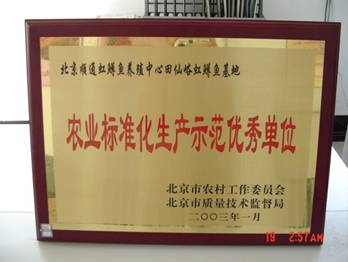 北京顺通虹鳟鱼养殖中心田仙峪虹鳟鱼基地
农业标准化生产示范优秀单位
北京市农村工作委员会
北京市质量技术监督局
二〇〇三年一月
19 2:57AM